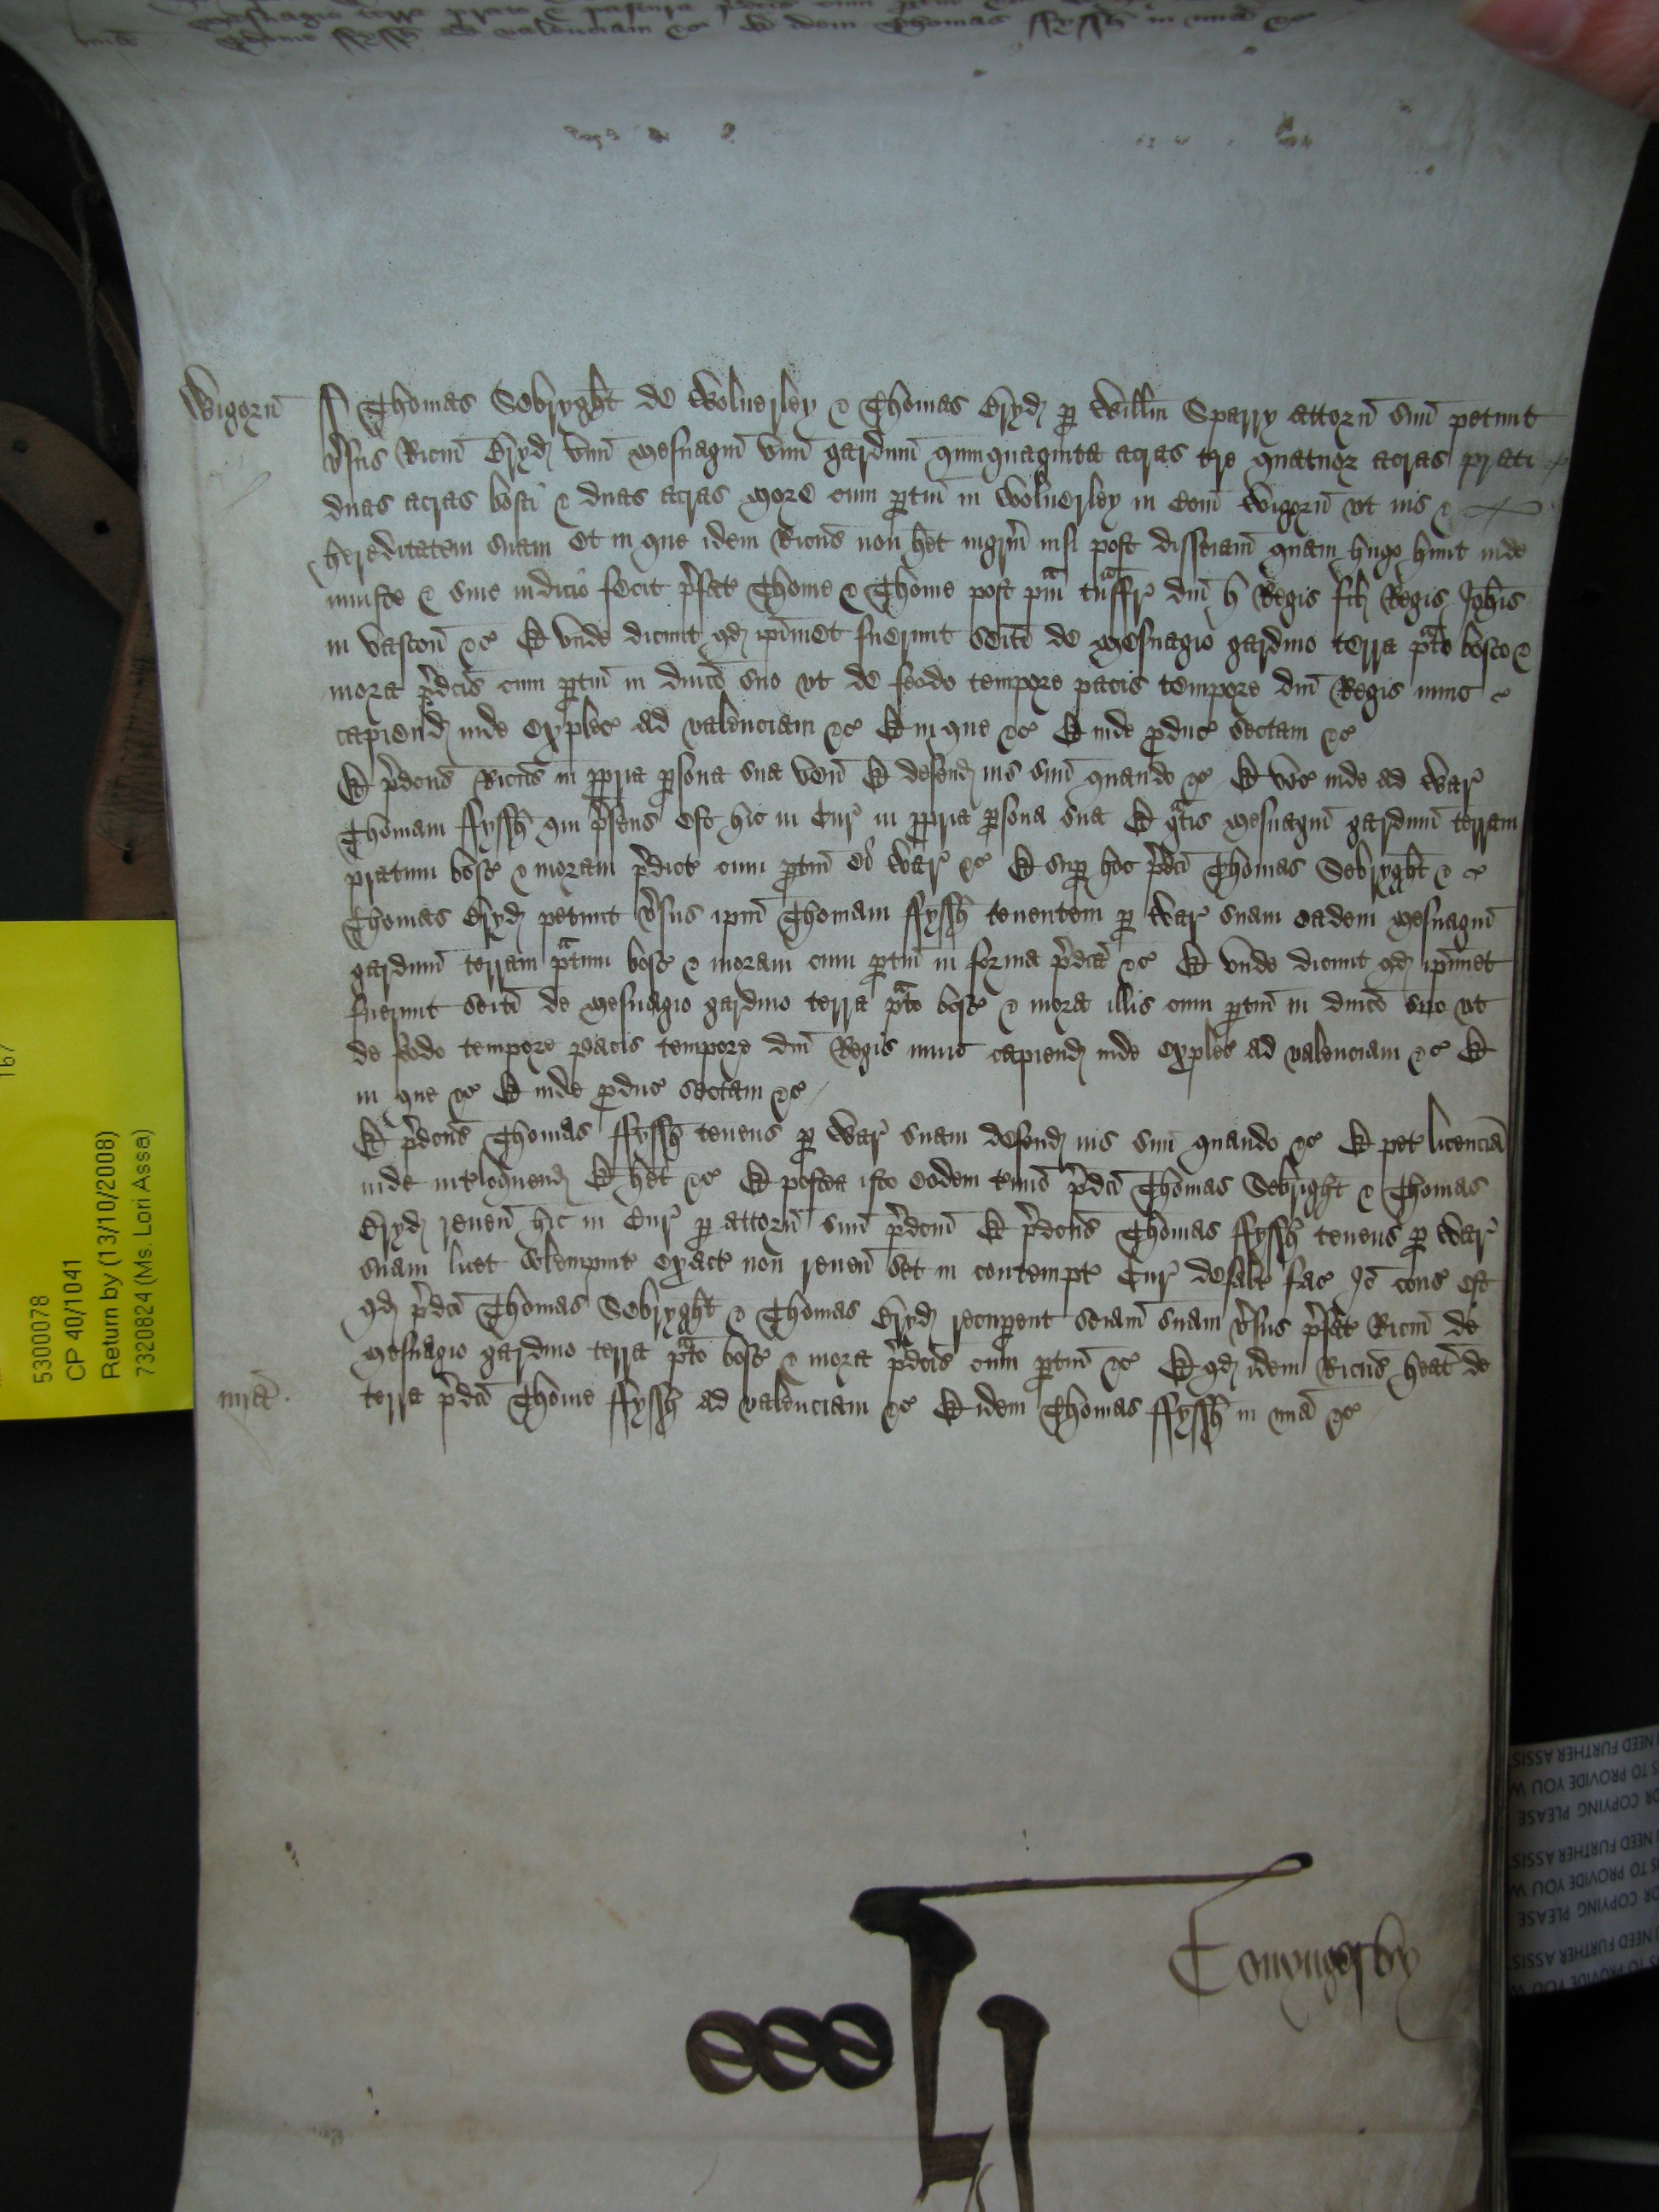 Thome ffyssh ad valenciam &c Et idem Thomas ffyssh in mia &c
Wigorn̄ ss Thomas Sebryght de Woluerley & Thomas Bryd̛ p Will̄m Sparry attorn̄ suū petunt
v̛sus Ric̄m Bryd̛ vnū mesuagiū vnū gardinū quinquaginta acras tr̄e quatuor acras prati
duas acras bosci & duas acras more cum ptin̄ in Woluerley in Com̄ Wigorn̄ vt ius &
hereditatem suam Et in que idem Ric̄us non h̄et ingr̄m nisi post disseiam̄ quam hugo hunt inde
iniuste & sine iudicio fecit p̛fat̛ Thome & Thome post pm̄ t̄nsfr̛ dn̄i h Regis fil̛ Regis Joh̄is
in vascon̄ &c Et vnde dicunt qd̛ ip̄imet fuerunt seiti de mesuagio gardino terra p̄to bosco &
mora p̛dc̄is cum ptin̄ in dn̄ico suo vt de feodo tempore pacis tempore dn̄i Regis nunc
capiend̛ inde explec̛ ad valenciam &c Et in que &c Et inde pduc̛ sectam &c
Et p̛dc̄us Ric̄us in ppria psona sua ven̄ Et defend̛ ius suū quando &c Et voc̛ inde ad War̛
Thomam ffyssh̄ qui p̛sens est hic in Cur̛ in ppria psona sua Et g̛tis mesuagiū gardinū terram
pratum bosc̛ & moram p̛dict̛ cum ptin̄ ei War̛ &c Et sup hoc p̛dc̄i Thomas Sebryght &
Thomas Bryd̛ petunt v̛sus ip̄m Thomam ffyssh̄ tenentem p War̛ suam eadem mesuagiū
gardinū terram p̄tum bosc̛ & moram cum ptin̄ in forma p̛dc̄a &c Et vnde dicunt qd̛ ip̄imet
fuerunt seiti de mesuagio gardino terra p̄to bosc̛ & mora illis cum ptin̄ in dn̄ico suo vt
de feodo tempore pacis tempore dn̄i Regis nunc capiend̛ inde explec̛ ad valenciam &c Et
in que &c Et inde pduc̛ sectam &c
Et p̛dc̄us Thomas ffyssh̄ tenens p War̛ suam defend̛ ius suū quando &c Et pet̛ licenciā
inde int̛loquend̛ Et h̄et &c Et postea isto eodem t̛mīo p̛dc̄i Thomas Sebright & Thomas
Bryd̛ reuen̄ hic in Cur̛ p attorn̄ suū p̛dc̄m Et p̛dc̄us Thomas ffyssh̄ tenens p War̛
suam licet solempnit̛ exact̛ non reuen̄ Set in contempt̛ Cur̛ defalt̛ fac̛ Iō cons̛ est
qd̛ p̛dc̄i Thomas Sebryght & Thomas Bryd̛ recuperent seiam̄ suam v̛sus p̛fat̛ Ric̄m de
mesuagio gardino terra p̄to bosc̛ & mora p̛dc̄is cum ptin̄ &c Et qd̛ idem Ric̄us heat̛ de
mīa terra p̛dc̄i Thome ffyssh̄ ad valenciam &c Et idem Thomas ffyssh̄ in mīa &c
Conyngesby
5300078
CP 40/1041
Return by (13/10/2008)
7320824 (Ms. Lori Assa)